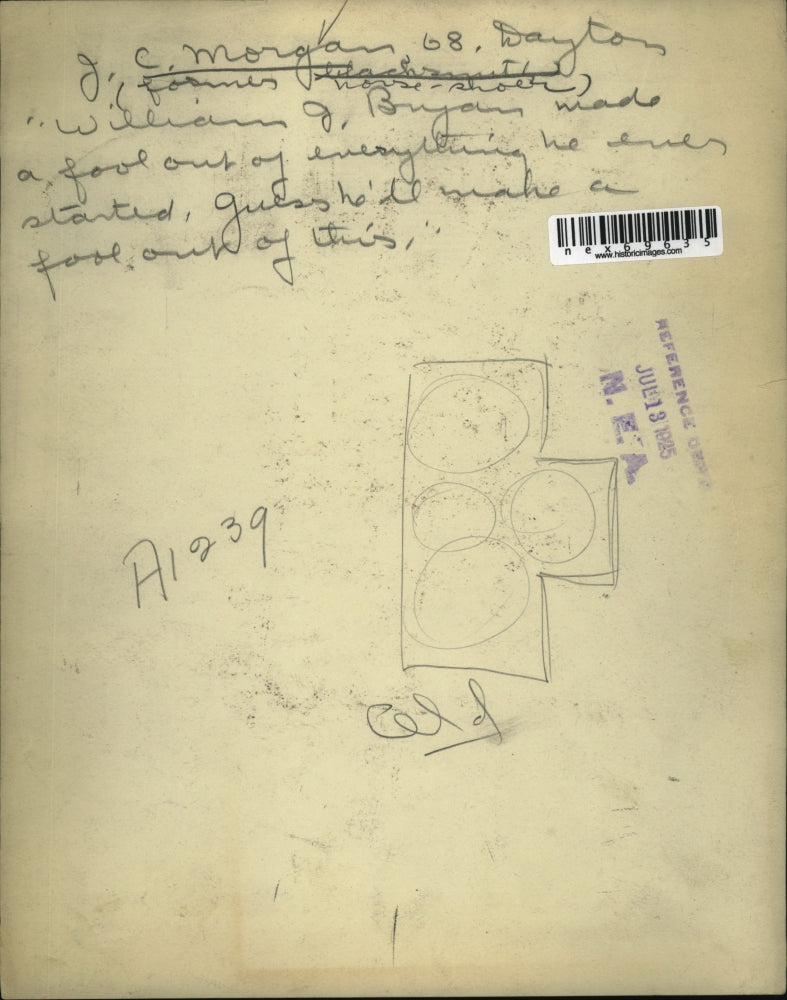 J. C. Morgan, 68, Dayton
(former blacksmith
horse-shoer)
"William J. Bryan made
a fool out of everything he ever
started. Guess he'll make a
fool out of this."
nex69635
www.historicimages.com
REFERENCE
JUL 13 1925
N. E. A.
A1239